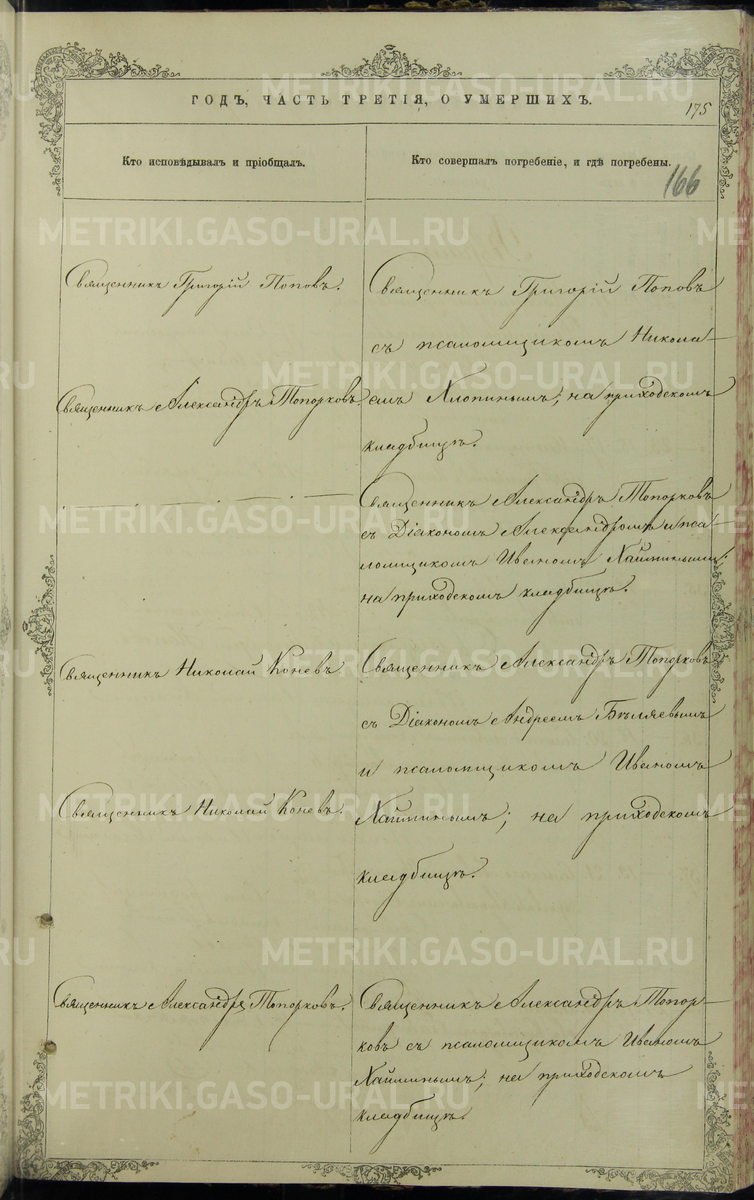 ГОДЪ, ЧАСТЬ ТРЕТІЯ, О УМЕРШИХЪ.
175
Кто исповѣдывалъ и пріобщалъ.
Кто совершалъ погребеніе, и гдѣ погребены.
166
Священникъ Григорій Поповъ.
Священникъ Александръ Топорковъ.
Священникъ Николай Коневъ
Священникъ Николай Коневъ.
Священникъ Александръ Топорковъ.
Священникъ Григорій Поповъ
съ псаломщикомъ Никола-
емъ Хлопинымъ; на приходскомъ
кладбищѣ.
Священникъ Александръ Топорковъ
съ Діакономъ Александромъ и пса-
ломщикомъ Иваномъ
на приходскомъ кладбищѣ.
Священникъ Александръ Топорковъ
съ Діакономъ Андреемъ Бѣляевымъ
и псаломщикомъ Иваномъ
на приходскомъ
кладбищѣ.
Священникъ Александръ Топор-
ковъ съ псаломщикомъ Иваномъ
на приходскомъ
кладбищѣ.
METRIKI.GASO-URAL.RU